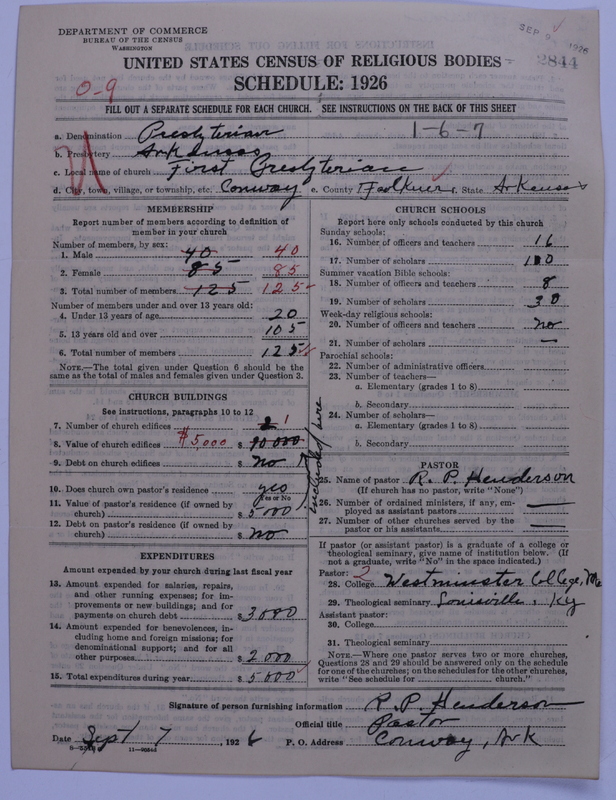 DEPARTMENT OF COMMERCE
BUREAU OF THE CENSUS
WASHINGTON
SEP 9 1926
2844
UNITED STATES CENSUS OF RELIGIOUS BODIES
SCHEDULE: 1926
0-9
FILL OUT A SEPARATE SCHEDULE FOR EACH CHURCH. SEE INSTRUCTIONS ON THE BACK OF THIS SHEET
a. Denomination Presbyterian 1-6-7
b. Presbytery Arkansas
c. Local name of church First Presbyterian
d. City, town, village, or township, etc. Conway e. County Faulkner f. State Arkansas
MEMBERSHIP
Report number of members according to definition of
member in your church
Number of members, by sex:
1. Male 40 40
2. Female 85 85
3. Total number of members 125 125
Number of members under and over 13 years old:
4. Under 13 years of age 20
5. 13 years old and over 105
6. Total number of members 125
NOTE.—The total given under Question 6 should be
same as the total of males and females given under Question 3.
CHURCH BUILDINGS
See instructions, paragraphs 10 to 12
7. Number of church edifices 2 1
8. Value of church edifices $5,000 $ 10000
9. Debt on church edifices $ no
10. Does church own pastor's residence yes
(Yes or No)
11. Value of pastor's residence (if owned by
church) $ 5000
included here
12. Debt on pastor's residence (if owned by
church) $ no
EXPENDITURES
Amount expended by your church during last fiscal year
13. Amount expended for salaries, repairs,
and other running expenses; for im-
provements or new buildings; and for
payments on church debt $ 3000
14. Amount expended for benevolences, in-
cluding home and foreign missions; for
denominational support; and for all
other purposes $ 2000
15. Total expenditures during year $ 5000
CHURCH SCHOOLS
Report here only schools conducted by this church
Sunday schools:
16. Number of officers and teachers 16
17. Number of scholars 100
Summer vacation Bible schools:
18. Number of officers and teachers 8
19. Number of scholars 30
Week-day religious schools:
20. Number of officers and teachers no
21. Number of scholars —
Parochial schools:
22. Number of administrative officers
23. Number of teachers—
a. Elementary (grades 1 to 8)
b. Secondary
24. Number of scholars—
a. Elementary (grades 1 to 8)
b. Secondary
PASTOR
25. Name of pastor R. P. Henderson
(If church has no pastor, write "None")
26. Number of ordained ministers, if any, em-
ployed as assistant pastors —
27. Number of other churches served by the
pastor or his assistants —
If pastor (or assistant pastor) is a graduate of a college or
theological seminary, give name of institution below. (If
not a graduate, write "No" in the space indicated.)
Pastor: 2
28. College Westminster College, Mo
29. Theological seminary Louisville, Ky
Assistant pastor:
30. College
31. Theological seminary
NOTE.—Where one pastor serves two or more churches,
Questions 28 and 29 should be answered only on the schedule
for one of the churches; on the schedules for the other churches,
write "See schedule for church."
Signature of person furnishing information R. P. Henderson
Official title Pastor
Date Sept 7, 1926 P. O. Address Conway, Ark
11-90543